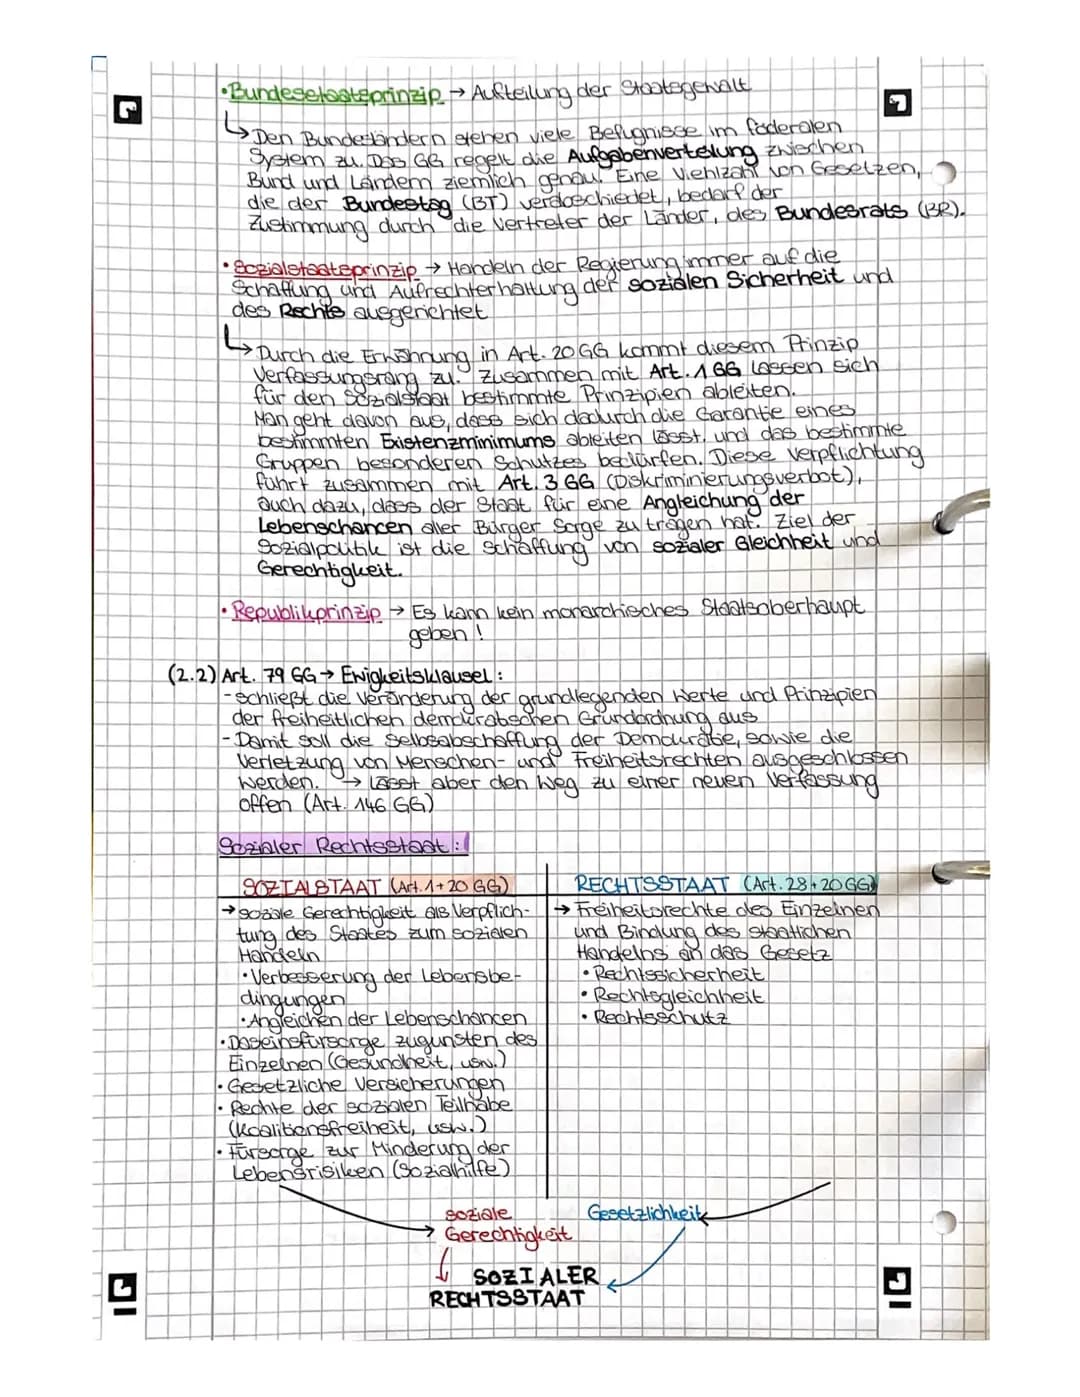 •Bundesstaatsprinzip → Aufteilung der Staatsgewalt
↳ Den Bundesländern stehen viele Befugnisse im föderalen
System zu. Das GG regelt die Aufgabenverteilung zwischen
Bund und Ländern ziemlich genau. Eine Viehlzahl von Gesetzen,
die der Bundestag (BT) verabschiedet, bedarf der
Zustimmung durch die Vertreter der Länder, des Bundesrats (BR).
• Sozialstaatsprinzip → Handeln der Regierung immer auf die
Schaffung und Aufrechterhaltung der sozialen Sicherheit und
des Rechts ausgerichtet
↳ Durch die Erwähnung in Art. 20 GG kommt diesem Prinzip
Verfassungsrang zu. Zusammen mit Art. 1 GG lassen sich
für den Sozialstaat bestimmte Prinzipien ableiten.
Man geht davon aus, dass sich dadurch die Garantie eines
bestimmten Existenzminimums ableiten lässt, und das bestimmte
Gruppen besonderen Schutzes bedürfen. Diese Verpflichtung
führt zusammen mit Art. 3 GG (Diskriminierungsverbot),
auch dazu, dass der Staat für eine Angleichung der
Lebenschancen aller Bürger Sorge zu tragen hat. Ziel der
Sozialpolitik ist die Schaffung von sozialer Gleichheit und
Gerechtigkeit.
• Republikprinzip → Es kann kein monarchisches Staatsoberhaupt
geben !
(2.2) Art. 79 GG → Ewigkeitsklausel :
- schließt die Veränderung der grundlegenden Werte und Prinzipien
der freiheitlichen demokratischen Grundordnung aus
- Damit soll die Selbsabschaffung der Demokratie, sowie die
Verletzung von Menschen- und Freiheitsrechten ausgeschlossen
werden. → Lässt aber den Weg zu einer neuen Verfassung
offen (Art. 146 GG)
Sozialer Rechtsstaat :
SOZIALSTAAT (Art. 1 + 20 GG)
→ soziale Gerechtigkeit als Verpflich-
tung des Staates zum sozialen
Handeln
• Verbesserung der Lebensbe-
dingungen
• Angleichen der Lebenschancen
• Daseinsfürsorge zugunsten des
Einzelnen (Gesundheit, usw.)
• Gesetzliche Versicherungen
• Rechte der sozialen Teilhabe
(Koalitionsfreiheit, usw.)
• Fürsorge zur Minderung der
Lebensrisiken (Sozialhilfe)
RECHTSSTAAT (Art. 28 + 20 GG)
→ Freiheitsrechte des Einzelnen
und Bindung des staatlichen
Handelns an das Gesetz
• Rechtssicherheit
• Rechtsgleichheit
• Rechtsschutz
soziale
Gerechtigkeit
Gesetzlichkeit
SOZIALER
RECHTSSTAAT